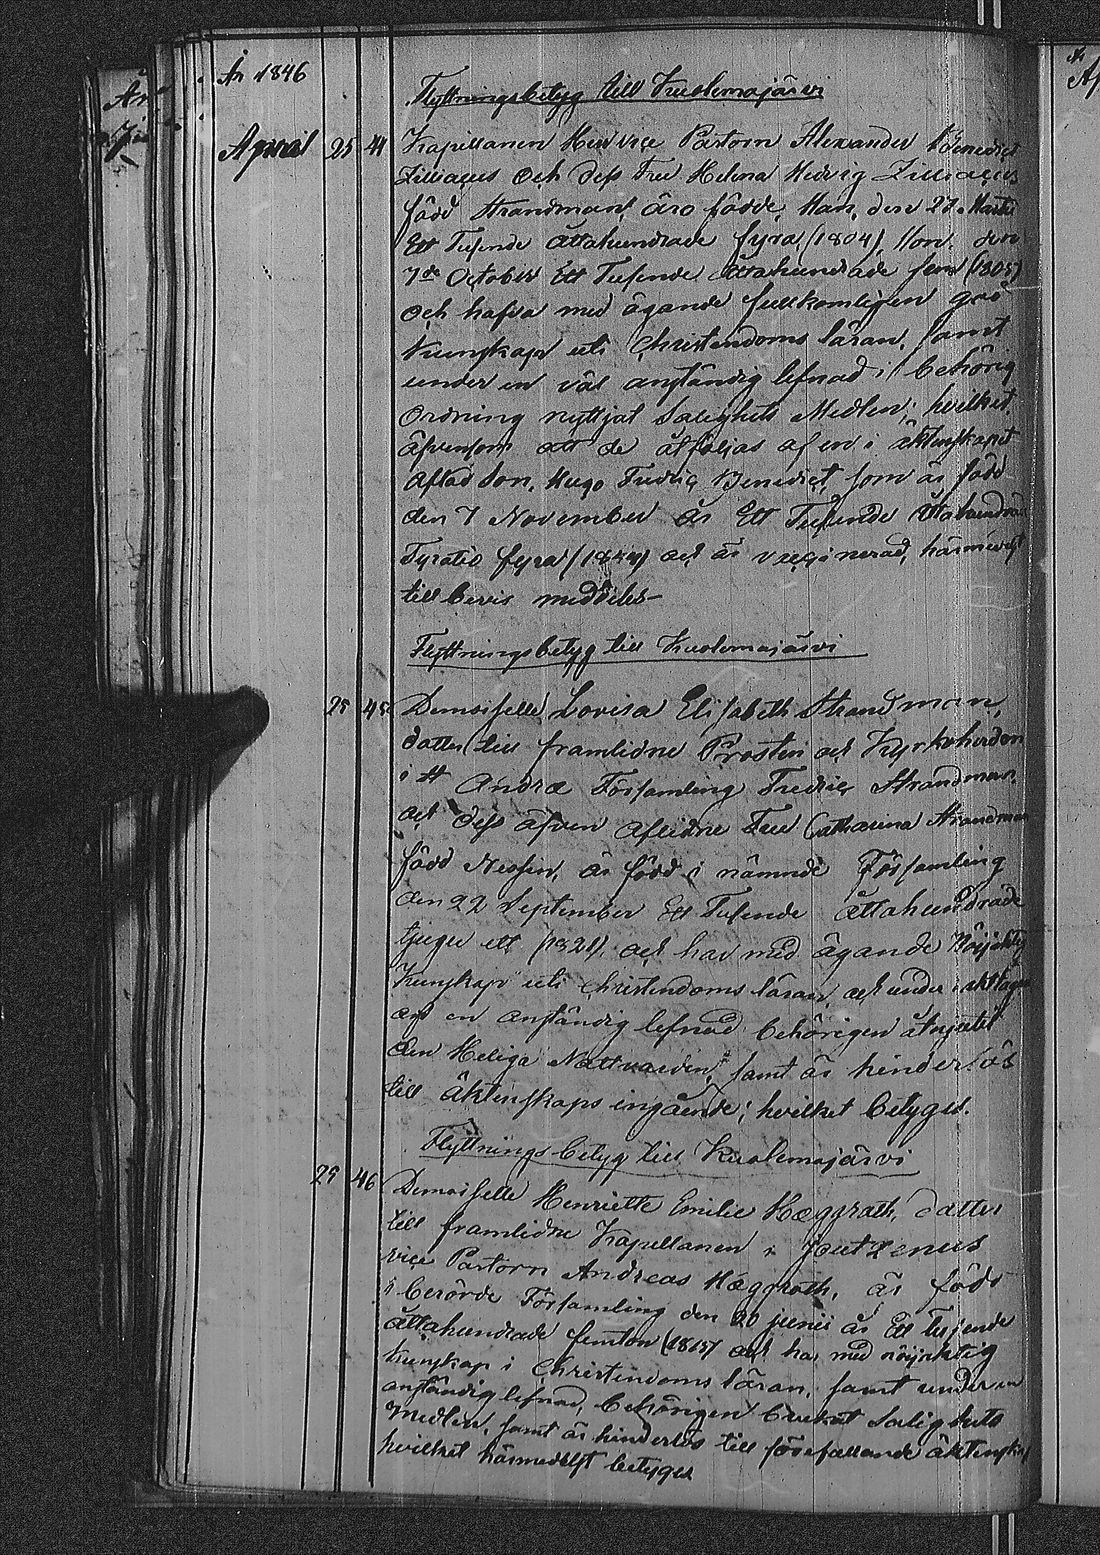 År 1846
Flyttningsbetyg till Kuolemajärvi
April 25 44 Kapellanen Herr vice Pastorn Alexander Benedict
Zilliacus och dess Fru Helena Hedvig Zilliacus
född Strandman, äro födde, Han, den 21
Ett Tusende Åttahundrade fyra (1804), Hon den
7de October Ett Tusende Åttahundrade fem (1805)
och hafva med ägande fullkomligen god
kunskap uti Christendoms läran, samt
under en väl anständig lefnad i behörig
Ordning nyttjat Salighets Medlen; hvilket,
äfvensom att de åtföljas af en i äktenskapet
aflad Son, Hugo Fredric Benedict, som är född
den 7 November år Ett Tusende Åttahundrade
Fyratio fyra (1844) och är vaccinerad, härmedelst
till bevis meddelas
Flyttningsbetyg till Kuolemajärvi
25 45 Demoiselle Lovisa Elisabeth Strandman,
dotter till framlidne Prosten och Kyrkoherden
i St Andræ Församling Fredric Strandman
och dess äfven aflidne Fru Catharina Strandman
född är född i nämnde Församling
den 22 September Ett Tusende åttahundrade
tjugu ett (1821), och har med ägande Nöjaktig
Kunskap uti Christendoms läran, och under iakttagande
af en anständig lefnad behörigen åtnjutit
den Heliga Nattvarden, samt är hinderlös
till äktenskaps ingående; hvilket betygas.
Flyttnings betyg till Kuolemajärvi
25 46 Demoiselle Henriette Emilie Hæggroth, dotter
till framlidne Kapellanen i Joutzenus
vice Pastorn Andreas Hæggroth, är född
i berörde Församling den 20 Junii år Ett Tusende
åttahundrade femton (1815) och har med nöjaktig
kunskap i Christendoms läran, samt under en
anständig lefnad, behörigen brukat Salighets
Medlen, samt är hinderlös till förefallande äktenskap
hvilket härmedelst betygas